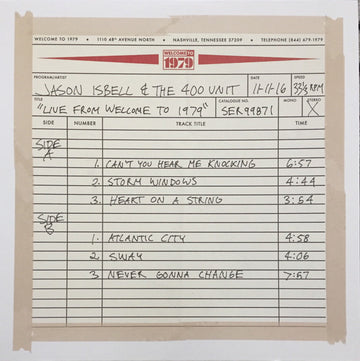 WELCOME TO 1979 • 1110 48th AVENUE NORTH • NASHVILLE, TENNESSEE 37209 • TELEPHONE (844) 679-1979
WELCOME TO
1979
PROGRAM/ARTIST DATE SPEED
JASON ISBELL & THE 400 UNIT 11-11-16 33⅓ RPM
TITLE CATALOGUE NO. MONO STEREO
"LIVE FROM WELCOME TO 1979" SER99871 X
SIDE NUMBER TRACK TITLE TIME
SIDE
A
1. CAN'T YOU HEAR ME KNOCKING 6:57
2. STORM WINDOWS 4:44
3. HEART ON A STRING 3:54
SIDE
B
1. ATLANTIC CITY 4:58
2. SWAY 4:06
3 NEVER GONNA CHANGE 7:57